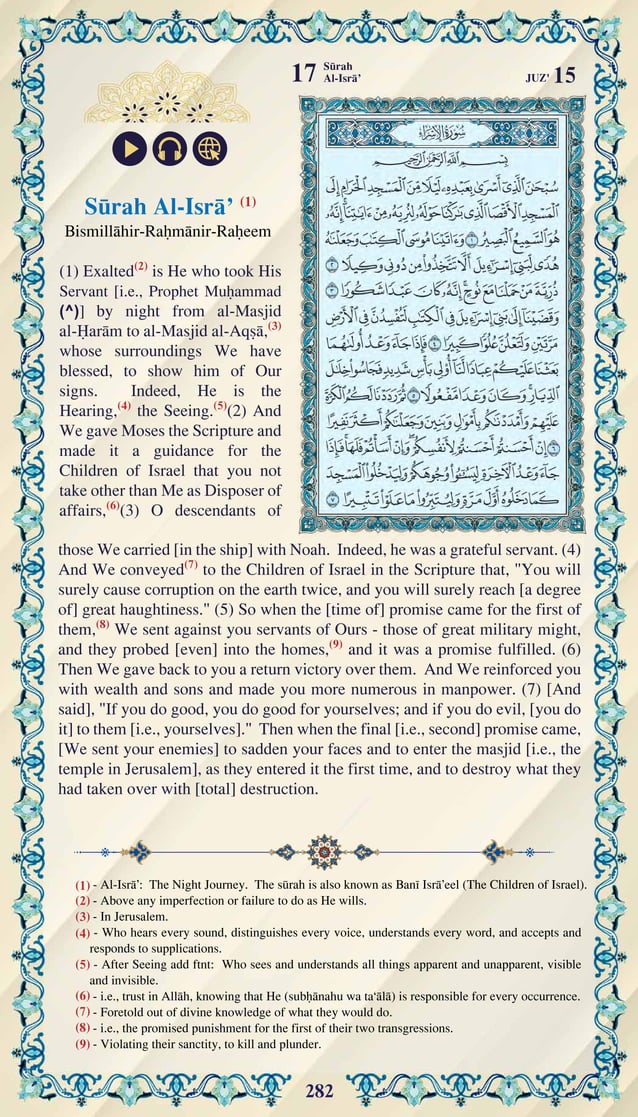 17 Sūrah
Al-Isrā’
JUZ' 15
سُورَةُ الإِسْرَاءِ
بِسْمِ ٱللَّهِ ٱلرَّحْمَٰنِ ٱلرَّحِيمِ
سُبْحَٰنَ ٱلَّذِىٓ أَسْرَىٰ بِعَبْدِهِۦ لَيْلًا مِّنَ ٱلْمَسْجِدِ ٱلْحَرَامِ إِلَى
ٱلْمَسْجِدِ ٱلْأَقْصَا ٱلَّذِى بَٰرَكْنَا حَوْلَهُۥ لِنُرِيَهُۥ مِنْ ءَايَٰتِنَآ إِنَّهُۥ
هُوَ ٱلسَّمِيعُ ٱلْبَصِيرُ ١ وَءَاتَيْنَا مُوسَى ٱلْكِتَٰبَ وَجَعَلْنَٰهُ
هُدًى لِّبَنِىٓ إِسْرَٰٓءِيلَ أَلَّا تَتَّخِذُوا۟ مِن دُونِى وَكِيلًا ٢
ذُرِّيَّةَ مَنْ حَمَلْنَا مَعَ نُوحٍ إِنَّهُۥ كَانَ عَبْدًا شَكُورًا ٣
وَقَضَيْنَآ إِلَىٰ بَنِىٓ إِسْرَٰٓءِيلَ فِى ٱلْكِتَٰبِ لَتُفْسِدُنَّ فِى ٱلْأَرْضِ
مَرَّتَيْنِ وَلَتَعْلُنَّ عُلُوًّا كَبِيرًا ٤ فَإِذَا جَآءَ وَعْدُ أُولَىٰهُمَا
بَعَثْنَا عَلَيْكُمْ عِبَادًا لَّنَآ أُو۟لِى بَأْسٍ شَدِيدٍ فَجَاسُوا۟ خِلَٰلَ
ٱلدِّيَارِ وَكَانَ وَعْدًا مَّفْعُولًا ٥ ثُمَّ رَدَدْنَا لَكُمُ ٱلْكَرَّةَ
عَلَيْهِمْ وَأَمْدَدْنَٰكُم بِأَمْوَٰلٍ وَبَنِينَ وَجَعَلْنَٰكُمْ أَكْثَرَ نَفِيرًا
٦ إِنْ أَحْسَنتُمْ أَحْسَنتُمْ لِأَنفُسِكُمْ وَإِنْ أَسَأْتُمْ فَلَهَا فَإِذَا
جَآءَ وَعْدُ ٱلْءَاخِرَةِ لِيَسُۥٓـُٔوا۟ وُجُوهَكُمْ وَلِيَدْخُلُوا۟ ٱلْمَسْجِدَ
كَمَا دَخَلُوهُ أَوَّلَ مَرَّةٍ وَلِيُتَبِّرُوا۟ مَا عَلَوْا۟ تَتْبِيرًا ٧
Sūrah Al-Isrā’ (1)
Bismillāhir-Raḥmānir-Raḥeem
(1) Exalted(2) is He who took His
Servant [i.e., Prophet Muḥammad
(^)] by night from al-Masjid
al-Ḥarām to al-Masjid al-Aqṣā,(3)
whose surroundings We have
blessed, to show him of Our
signs. Indeed, He is the
Hearing,(4) the Seeing.(5)(2) And
We gave Moses the Scripture and
made it a guidance for the
Children of Israel that you not
take other than Me as Disposer of
affairs,(6)(3) O descendants of
those We carried [in the ship] with Noah. Indeed, he was a grateful servant. (4)
And We conveyed(7) to the Children of Israel in the Scripture that, "You will
surely cause corruption on the earth twice, and you will surely reach [a degree
of] great haughtiness." (5) So when the [time of] promise came for the first of
them,(8) We sent against you servants of Ours - those of great military might,
and they probed [even] into the homes,(9) and it was a promise fulfilled. (6)
Then We gave back to you a return victory over them. And We reinforced you
with wealth and sons and made you more numerous in manpower. (7) [And
said], "If you do good, you do good for yourselves; and if you do evil, [you do
it] to them [i.e., yourselves]." Then when the final [i.e., second] promise came,
[We sent your enemies] to sadden your faces and to enter the masjid [i.e., the
temple in Jerusalem], as they entered it the first time, and to destroy what they
had taken over with [total] destruction.
(1) - Al-Isrā’: The Night Journey. The sūrah is also known as Banī Isrā’eel (The Children of Israel).
(2) - Above any imperfection or failure to do as He wills.
(3) - In Jerusalem.
(4) - Who hears every sound, distinguishes every voice, understands every word, and accepts and
responds to supplications.
(5) - After Seeing add ftnt: Who sees and understands all things apparent and unapparent, visible
and invisible.
(6) - i.e., trust in Allāh, knowing that He (subḥānahu wa ta‘ālā) is responsible for every occurrence.
(7) - Foretold out of divine knowledge of what they would do.
(8) - i.e., the promised punishment for the first of their two transgressions.
(9) - Violating their sanctity, to kill and plunder.
282